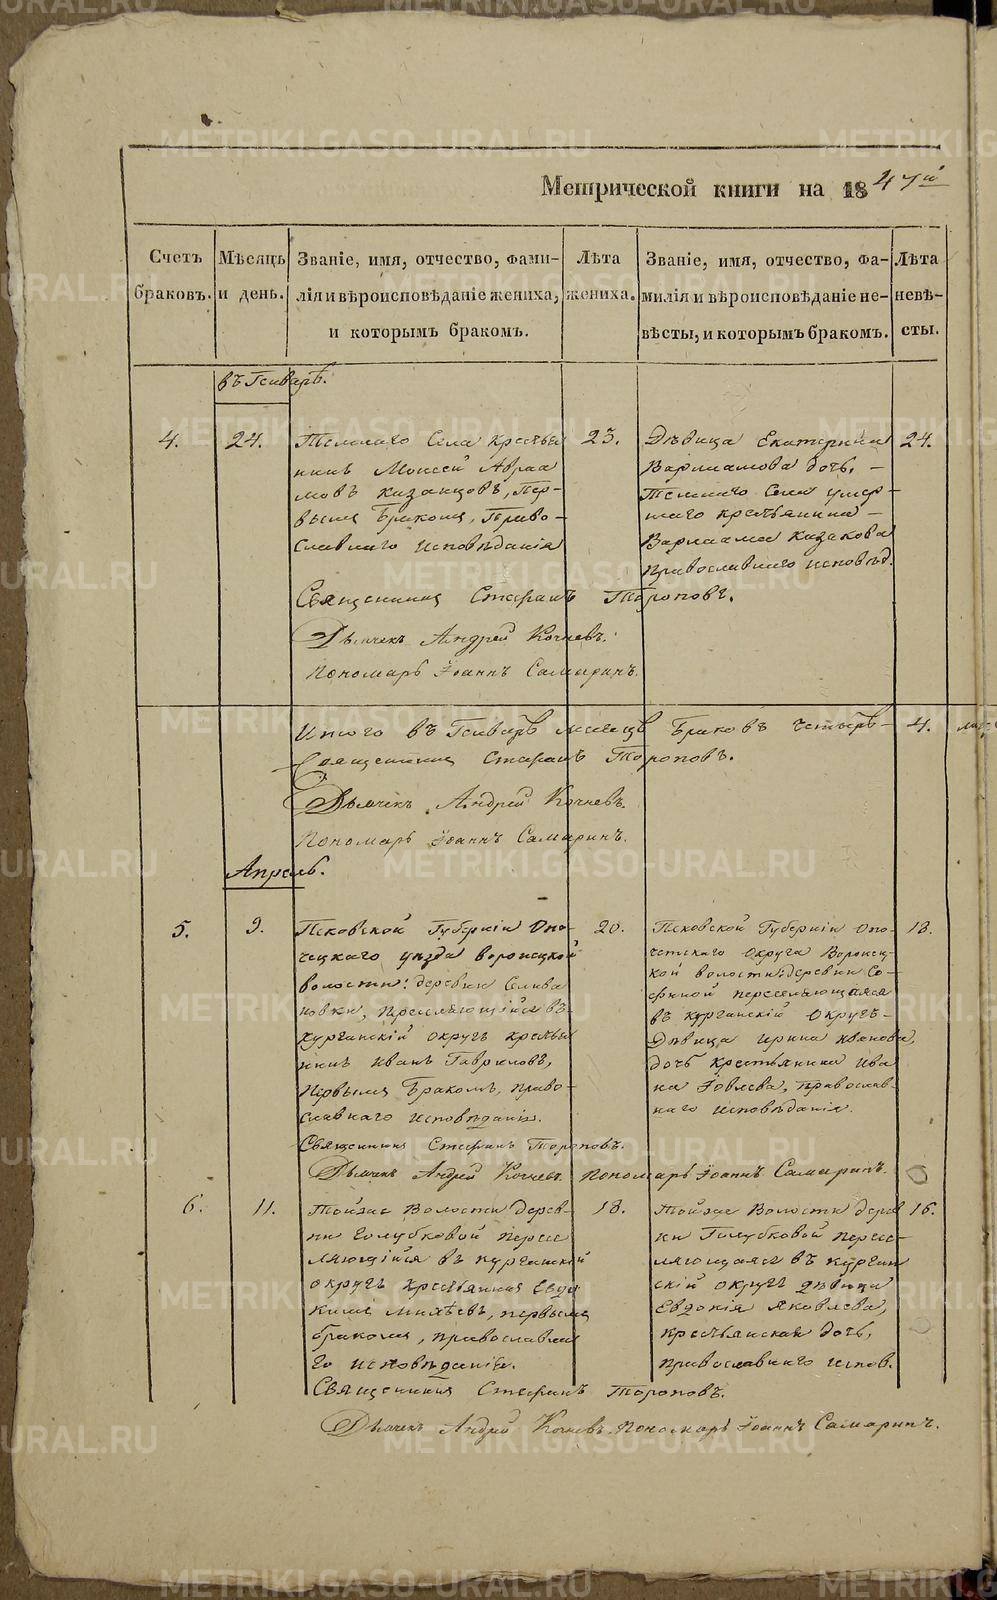 Метрической книги на 1847й
Счетъ браковъ.
Мѣсяцъ и день.
Званіе, имя, отчество, фами-
лія и вѣроисповѣданіе жениха,
и которымъ бракомъ.
Лѣта жениха.
Званіе, имя, отчество, фа-
милія и вѣроисповѣданіе не-
вѣсты, и которымъ бракомъ.
Лѣта невѣ-
сты.
въ Генварѣ.
4.
24.
Села крестья
нинъ Моисей Авраа
мовъ Казанцовъ, Пер-
вымъ Бракомъ, Право-
славнаго исповѣданія
23.
Дѣвица Екатерина
Варлаамова дочь, –
Села умер-
шаго крестьянина –
Варлаама Казакова
православнаго исповѣд.
24.
Священникъ Стефанъ Тороповъ.
Дьячекъ Андрей Кочневъ.
Пономарь Іоаннъ Самаринъ.
Итого въ Генварѣ месяцѣ Браковъ четыре – 4.
Священникъ Стефанъ Тороповъ.
Дьячекъ Андрей Кочневъ.
Пономарь Іоаннъ Самаринъ.
Апрель.
5.
9.
Псковской Губерніи Опо-
чецкаго уѣзда Воронецкой
волости: деревни Селива
новки, переселяющійся въ
Курганскій округъ крестья
нинъ Иванъ Гавриловъ,
Первымъ Бракомъ, право-
славнаго исповѣданія.
20.
Псковской Губерніи Опо-
четскаго округа Воронец-
кой волости: деревни Со-
финой переселяющаяся
въ Курганскій Округъ –
Дѣвица Ирина Иванова,
дочь крестьянина Ива
на, православ-
наго исповѣданія.
18.
Священникъ Стефанъ Тороповъ.
Дьячекъ Андрей Кочневъ Пономарь Іоаннъ Самаринъ.
6.
11.
Тойже Волости дерев-
ни Голубковой пересе
ляющійся въ Курганскій
округъ крестьянинъ Евдо
кимъ Михѣевъ, первымъ
бракомъ, православна
го исповѣданія.
18.
Тойже Волости дерев
ни Голубковой пересе-
ляющаяся въ Курган
скій округъ дѣвица
Евдокія Яковлева,
крестьянская дочь,
православнаго испов.
16.
Священникъ Стефанъ Тороповъ.
Дьячекъ Андрей Кочневъ Пономарь Іоаннъ Самаринъ.
METRIKI.GASO-URAL.RU